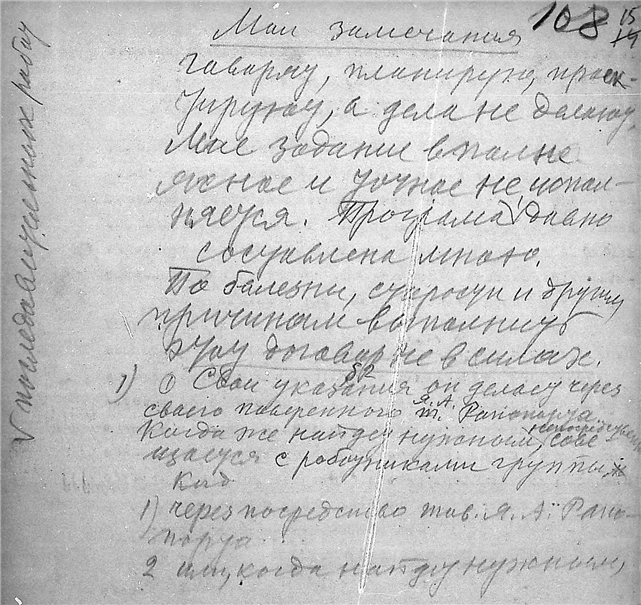 108 15
Маи замечания
гаварят, планируют, праек
тируют, а дела не делают
Мае задание вполне
яснае и точнае не испол-
няется. Програма давно
составлена мною.
По балезни, старости и другим
причинам выполнить
этат договар не в силах.
1) Свои указания он делает через
своего поверенного т. Я. А. Рапопорта.
Когда же найдет нужным, непосредствен
сове
щается с работниками группы
КИД
1) через посредство тов. Я. А. Рапо-
порта
2 или, когда найдет нужным,
V последавательных работ